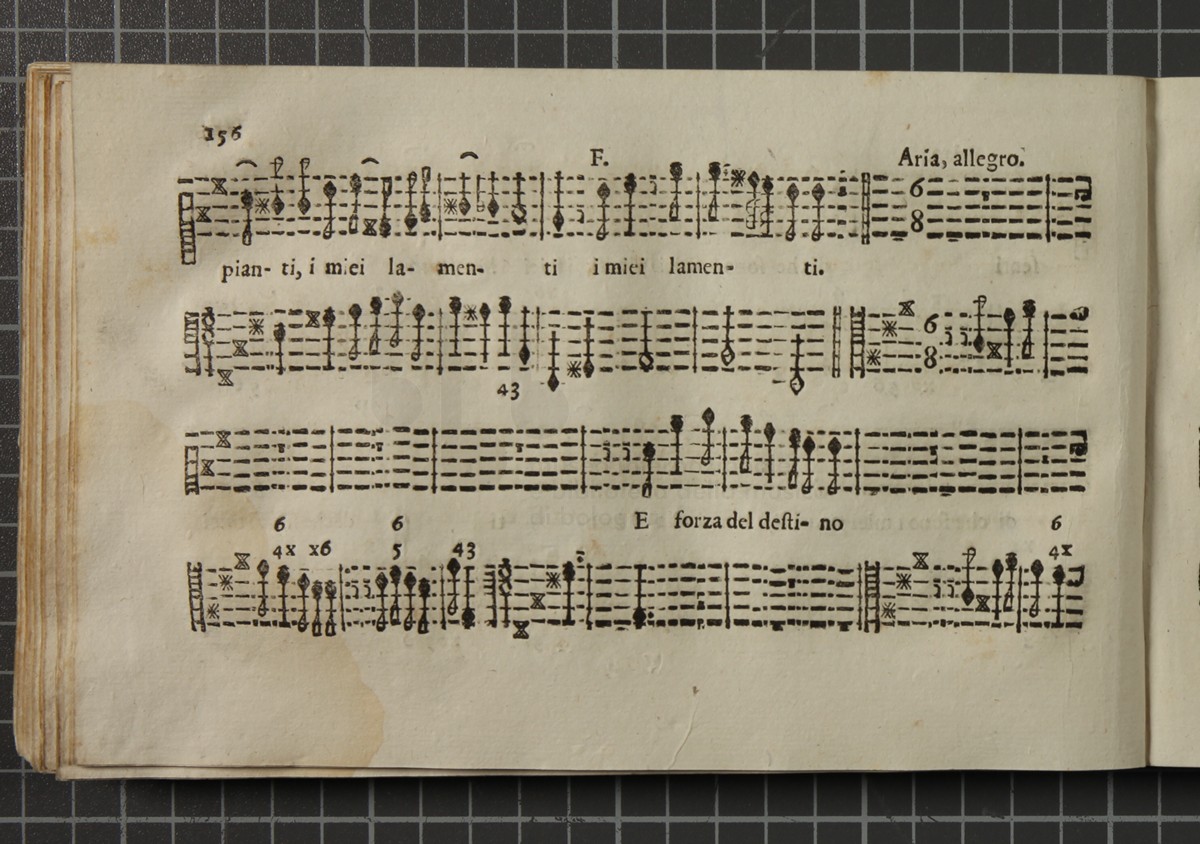 156
F. Aria, allegro.
6
8
pian- ti, i miei la- men- ti i miei lamen- ti.
6
8
43
E forza del desti- no
6 6 6
4x x6 5 43 4x